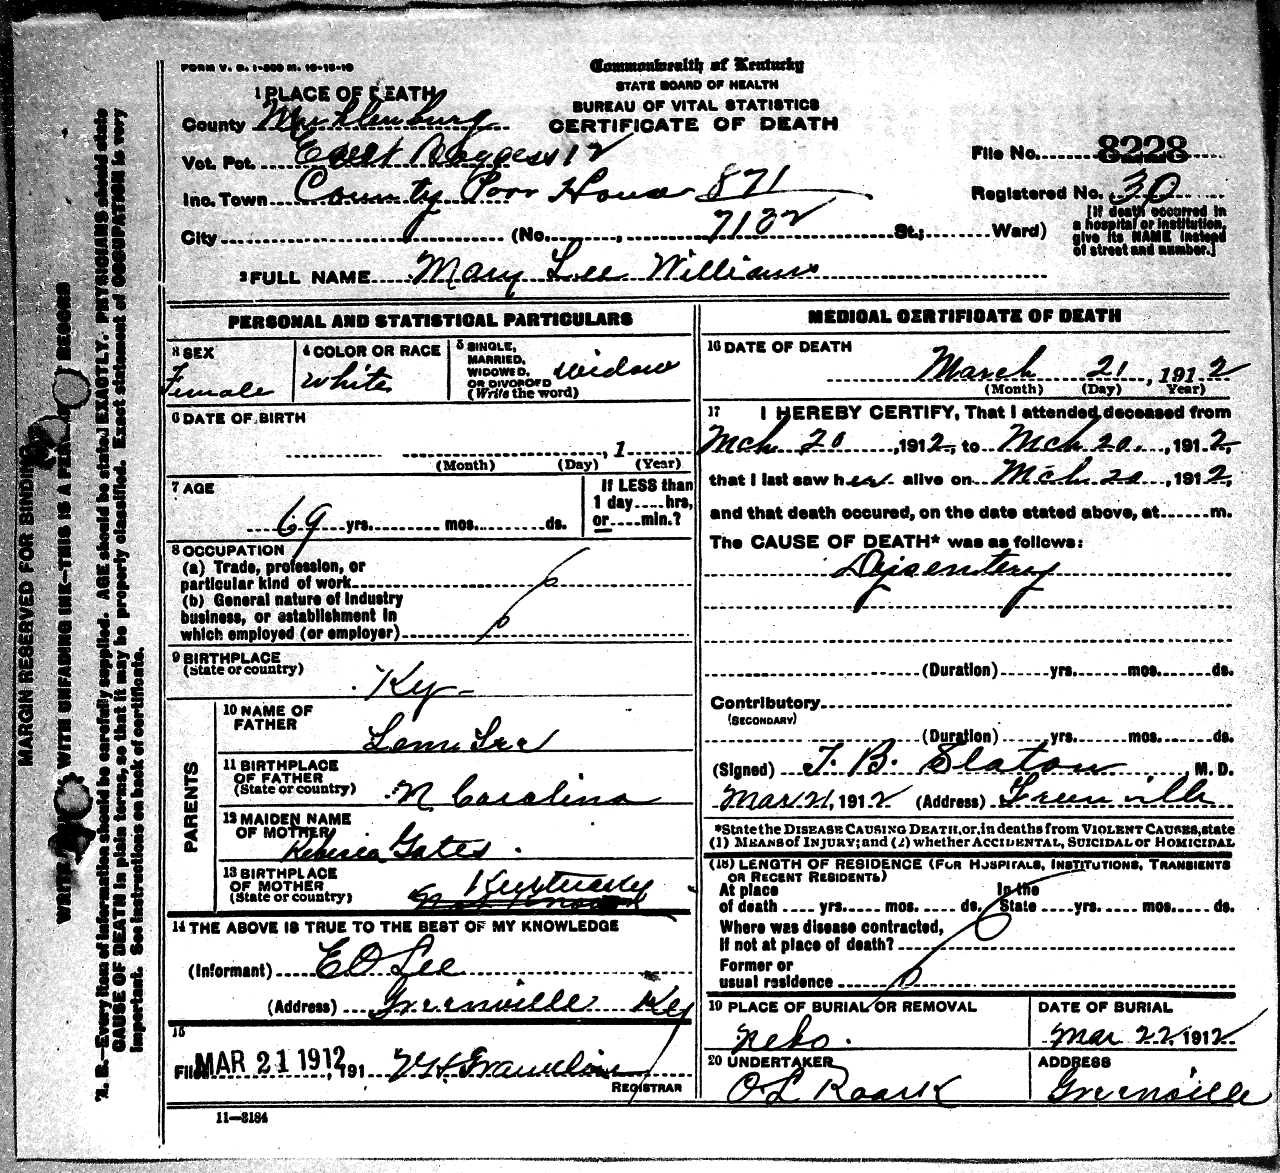 FORM V. S. 1-300 M. 10-18-10
Commonwealth of Kentucky
STATE BOARD OF HEALTH
BUREAU OF VITAL STATISTICS
CERTIFICATE OF DEATH
1 PLACE OF DEATH
County Muhlenburg
Vot. Pct. East 12
Inc. Town County Poor House 871
City (No. , 7132 St.; Ward)
File No. 8228
Registered No. 30
[If death occurred in
a hospital or institution,
give its NAME instead
of street and number.]
2 FULL NAME Mary Lee Williams
PERSONAL AND STATISTICAL PARTICULARS
3 SEX
Female
4 COLOR OR RACE
White
5 SINGLE,
MARRIED,
WIDOWED,
OR DIVORCED
(Write the word)
Widow
6 DATE OF BIRTH
, 1
(Month) (Day) (Year)
7 AGE
69 yrs. mos. ds.
If LESS than
1 day .... hrs,
or .... min.?
8 OCCUPATION
(a) Trade, profession, or
particular kind of work
(b) General nature of industry
business, or establishment in
which employed (or employer)
9 BIRTHPLACE
(State or country)
Ky
PARENTS
10 NAME OF
FATHER
Lee
11 BIRTHPLACE
OF FATHER
(State or country)
N Carolina
12 MAIDEN NAME
OF MOTHER
Gates
13 BIRTHPLACE
OF MOTHER
(State or country)
Kentucky
14 THE ABOVE IS TRUE TO THE BEST OF MY KNOWLEDGE
(Informant) E O Lee
(Address) Greenville Ky
15
Filed MAR 21 1912, 191
REGISTRAR
11-3184
MEDICAL CERTIFICATE OF DEATH
16 DATE OF DEATH
March 21, 1912
(Month) (Day) Year)
17 I HEREBY CERTIFY, That I attended deceased from
Mch 20, 1912, to Mch 20, 1912,
that I last saw her alive on Mch 20, 1912,
and that death occured, on the date stated above, at m.
The CAUSE OF DEATH* was as follows:
Dysentery
(Duration) yrs. mos. ds.
Contributory
(SECONDARY)
(Duration) yrs. mos. ds.
(Signed) T. B. Slaton M. D.
Mar 21, 1912 (Address) Greenville
*State the DISEASE CAUSING DEATH, or, in deaths from VIOLENT CAUSES, state
(1) MEANS of INJURY; and (2) whether ACCIDENTAL, SUICIDAL or HOMICIDAL
(18) LENGTH OF RESIDENCE (FOR HOSPITALS, INSTITUTIONS, TRANSIENTS
OR RECENT RESIDENTS)
At place
of death yrs. mos. ds.
In the
State yrs. mos. ds.
Where was disease contracted,
If not at place of death?
Former or
usual residence
19 PLACE OF BURIAL OR REMOVAL
Nebo
DATE OF BURIAL
Mar 22 1912
20 UNDERTAKER
O L Roark
ADDRESS
Greenville
MARGIN RESERVED FOR BINDING
WITH UNFADING INK—THIS IS A RECORD
N. B.—Every item of information should be carefully supplied. AGE should be stated EXACTLY. PHYSICIANS should state
CAUSE OF DEATH in plain terms, so that it may be properly classified. Exact statement of OCCUPATION is very
important. See instructions on back of certificate.